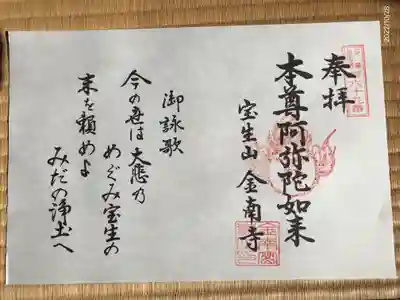 奉拝
本尊阿弥陀如来
宝生山 金南寺
御詠歌
今の世は 大悲乃
めぐみ宝生の
末を頼めよ
みだの浄土へ
2022/10/28